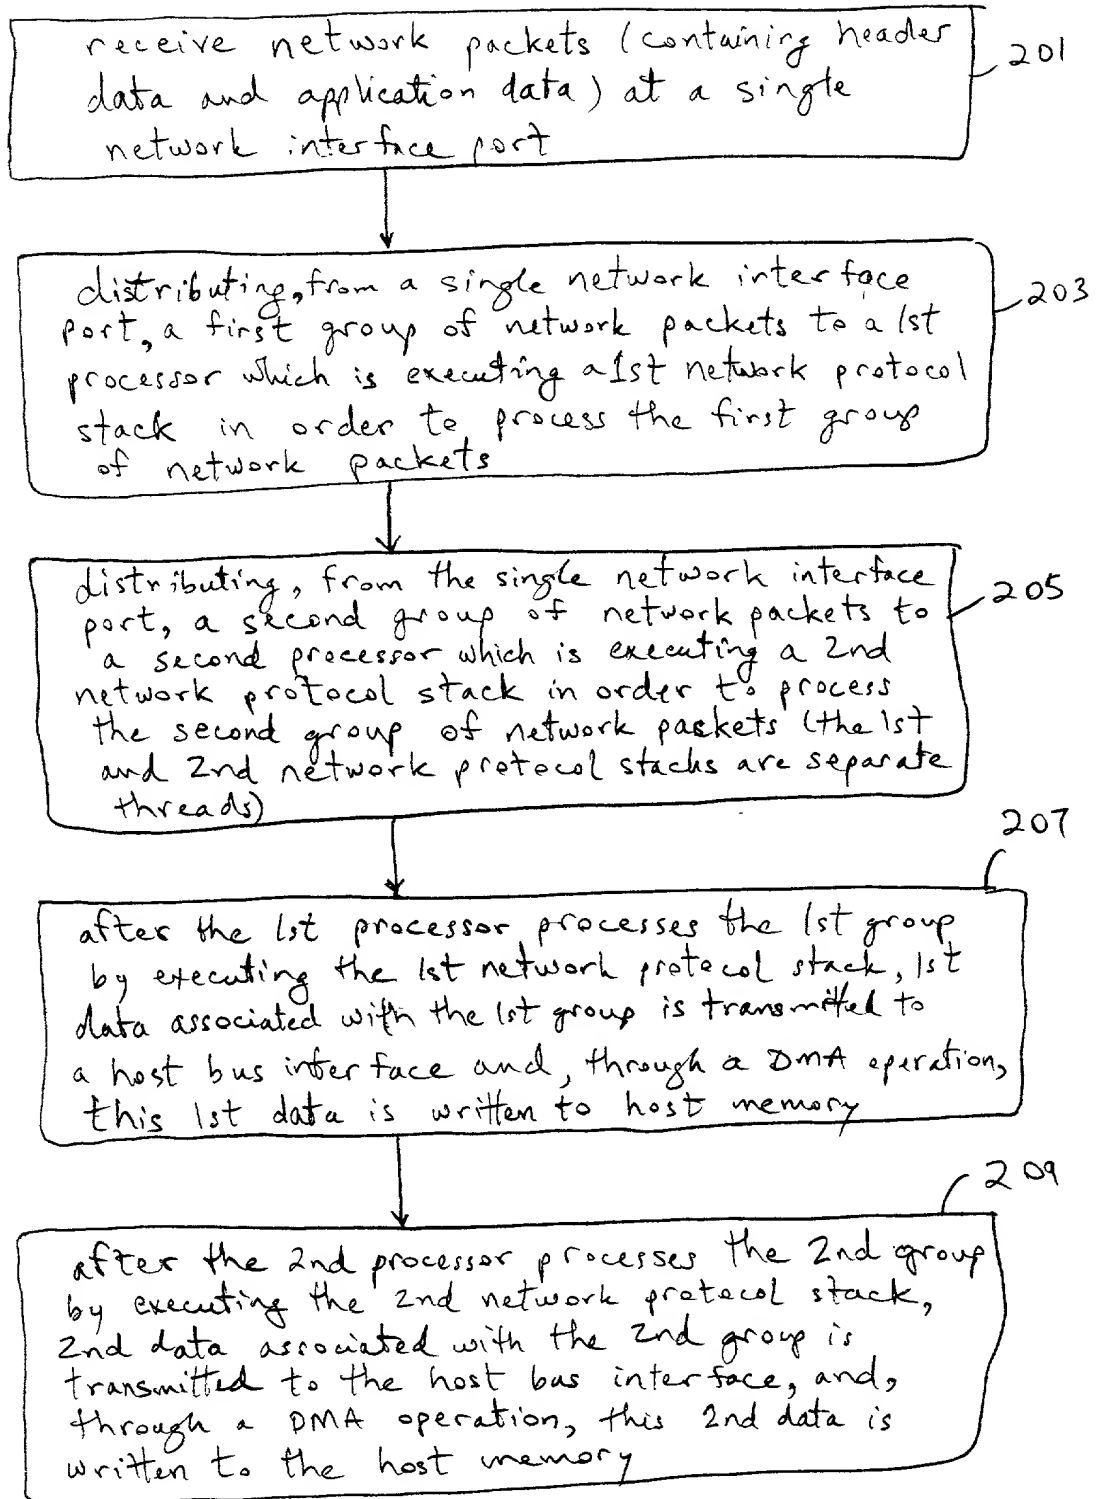 receive network packets (containing header
data and application data) at a single
network interface port
201
distributing, from a single network interface
port, a first group of network packets to a 1st
processor which is executing a 1st network protocol
stack in order to process the first group
of network packets
203
distributing, from the single network interface
port, a second group of network packets to
a second processor which is executing a 2nd
network protocol stack in order to process
the second group of network packets (the 1st
and 2nd network protocol stacks are separate
threads)
205
207
after the 1st processor processes the 1st group
by executing the 1st network protocol stack, 1st
data associated with the 1st group is transmitted to
a host bus interface and, through a DMA operation,
this 1st data is written to host memory
209
after the 2nd processor processes the 2nd group
by executing the 2nd network protocol stack,
2nd data associated with the 2nd group is
transmitted to the host bus interface, and,
through a DMA operation, this 2nd data is
written to the host memory